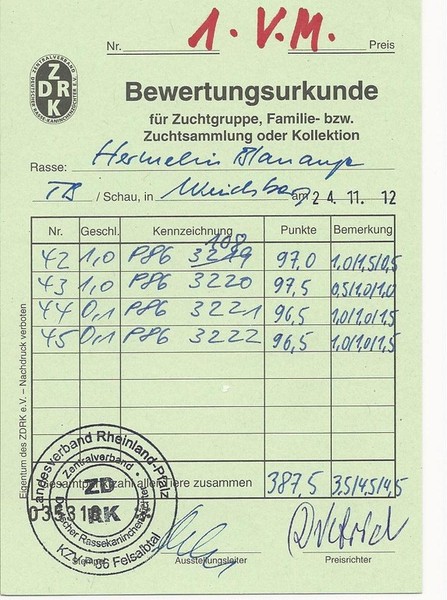 Nr. 1. V.M. Preis
ZENTRALVERBAND DEUTSCHER RASSE-KANINCHENZÜCHTER E.V.
ZDRK
Bewertungsurkunde
für Zuchtgruppe, Familie- bzw.
Zuchtsammlung oder Kollektion
Rasse: Hermelin Blauauge
TB / Schau, in am 24. 11. 12
Nr. Geschl. Kennzeichnung Punkte Bemerkung
108
42 1,0 P86 3219 97,0 1,0/1,5/0,5
43 1,0 P86 3220 97,5 0,5/1,0/1,0
44 0,1 P86 3221 96,5 1,0/1,0/1,5
45 0,1 P86 3222 96,5 1,0/1,0/1,5
Gesamtpunktzahl aller Tiere zusammen 387,5 3,5/4,5/4,5
Eigentum des ZDRK e.V. – Nachdruck verboten
Landesverband Rheinland-Pfalz
Zentralverband
Deutscher Rassekaninchenzüchter
ZD
RK
KZV P 86 Felsalbtal
Ausstellungsleiter Preisrichter